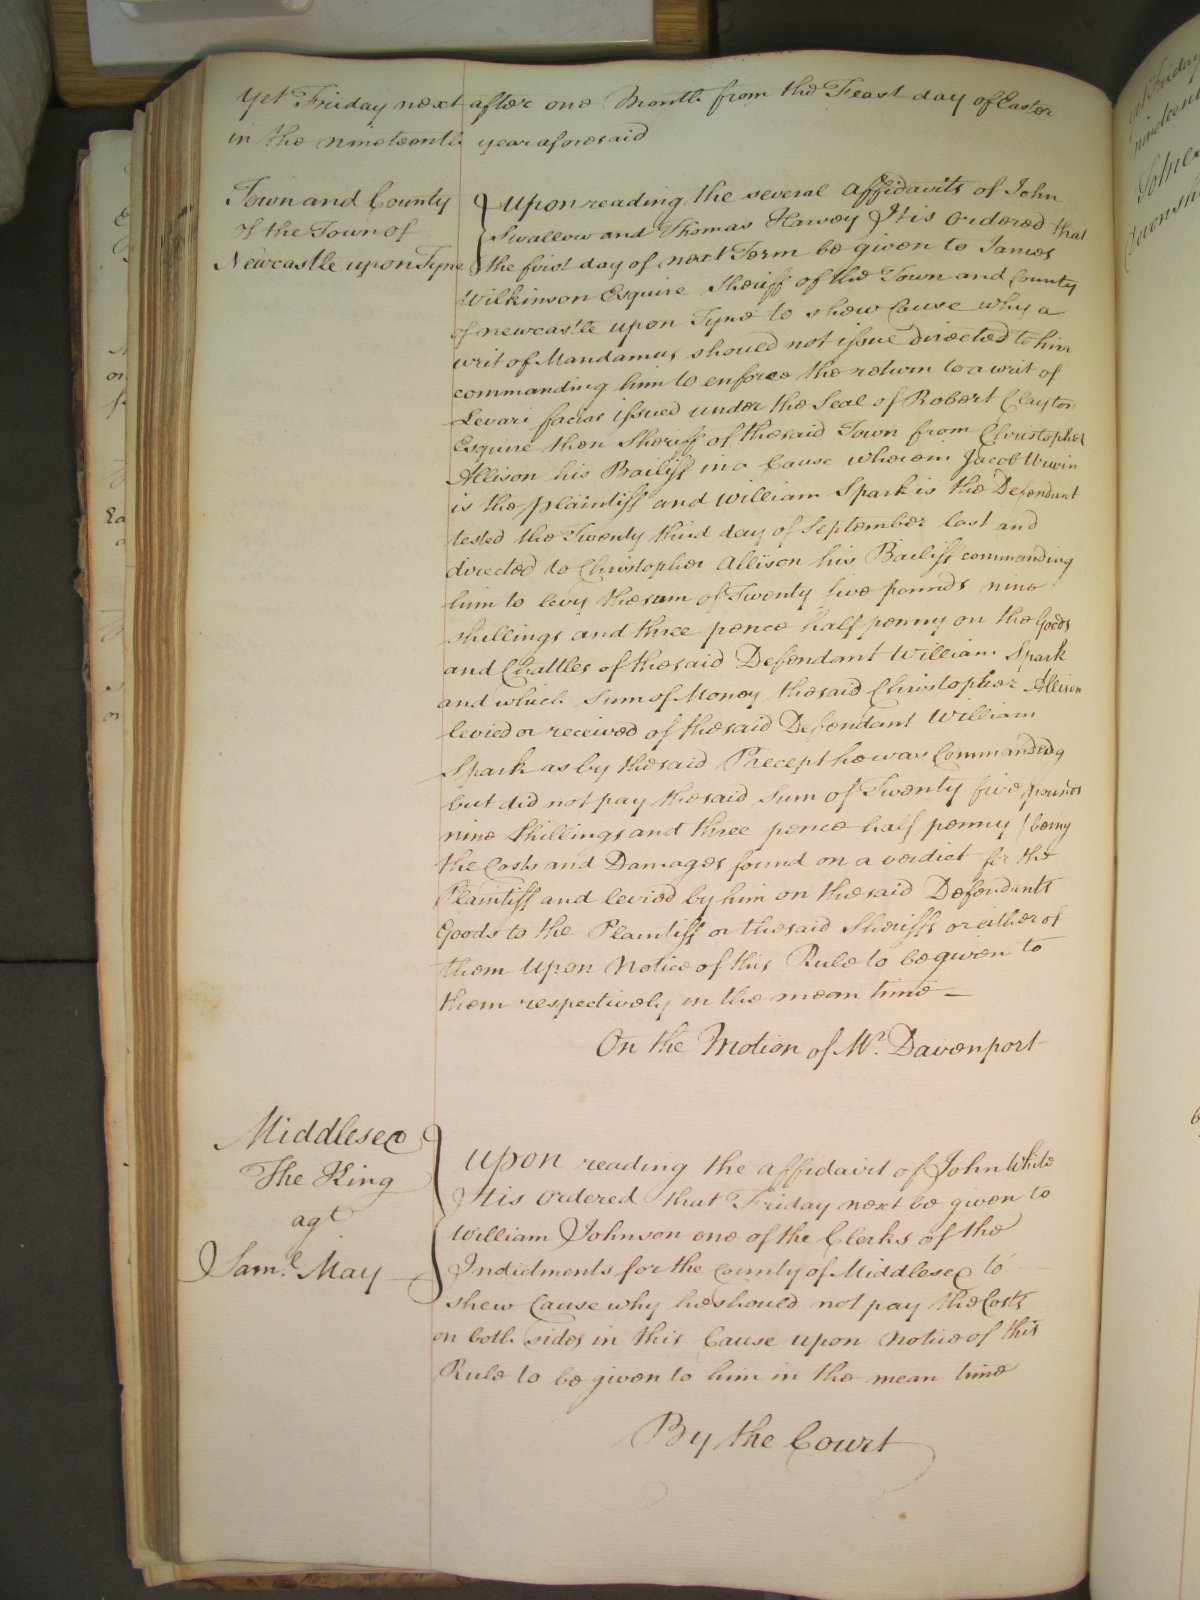 Yet Friday next after one Month from the Feast day of Easter
in the nineteenth year aforesaid
Town and County
of the Town of
Newcastle upon Tyne
Upon reading the several affidavits of John
Swallow and Thomas Harvey It is Ordered that
the first day of next Term be given to James
Wilkinson Esquire Sheriff of the Town and County
of newcastle upon Tyne to shew Cause why a
writ of Mandamus should not issue directed to him
commanding him to enforce the return to a writ of
Levari facias issued under the Seal of Robert Clayton
Esquire then Sheriff of the said Town from Christopher
Allison his Bailiff in a Cause wherein Jacob Unwin
is the plaintiff and William Spark is the Defendant
tested the Twenty third day of September last and
directed to Christopher Allison his Bailiff commanding
him to levy the sum of Twenty five pounds nine
shillings and three pence half penny on the Goods
and Chattles of the said Defendant William Spark
and which Sum of Money the said Christopher Allison
levied or received of the said Defendant William
Spark as by the said Precept he was Commanded
but did not pay the said Sum of Twenty five pounds
nine Shillings and three pence half penny (being
the Costs and Damages found on a verdict for the
Plaintiff and levied by him on the said Defendants
Goods to the Plaintiff or the said Sheriffs or either of
them Upon Notice of this Rule to be given to
them respectively in the mean time
On the Motion of Mr. Davenport
Middlesex
The King
agt
Saml. May
Upon reading the affidavit of John White
It is Ordered that Friday next be given to
William Johnson one of the Clerks of the
Indictments for the County of Middlesex to
shew Cause why he should not pay the Costs
on both sides in this Cause upon Notice of this
Rule to be given to him in the mean time
By the Court